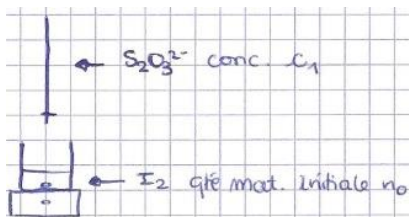 S₂O₃²⁻ conc. C₁
I₂ qté mat. initiale n₀